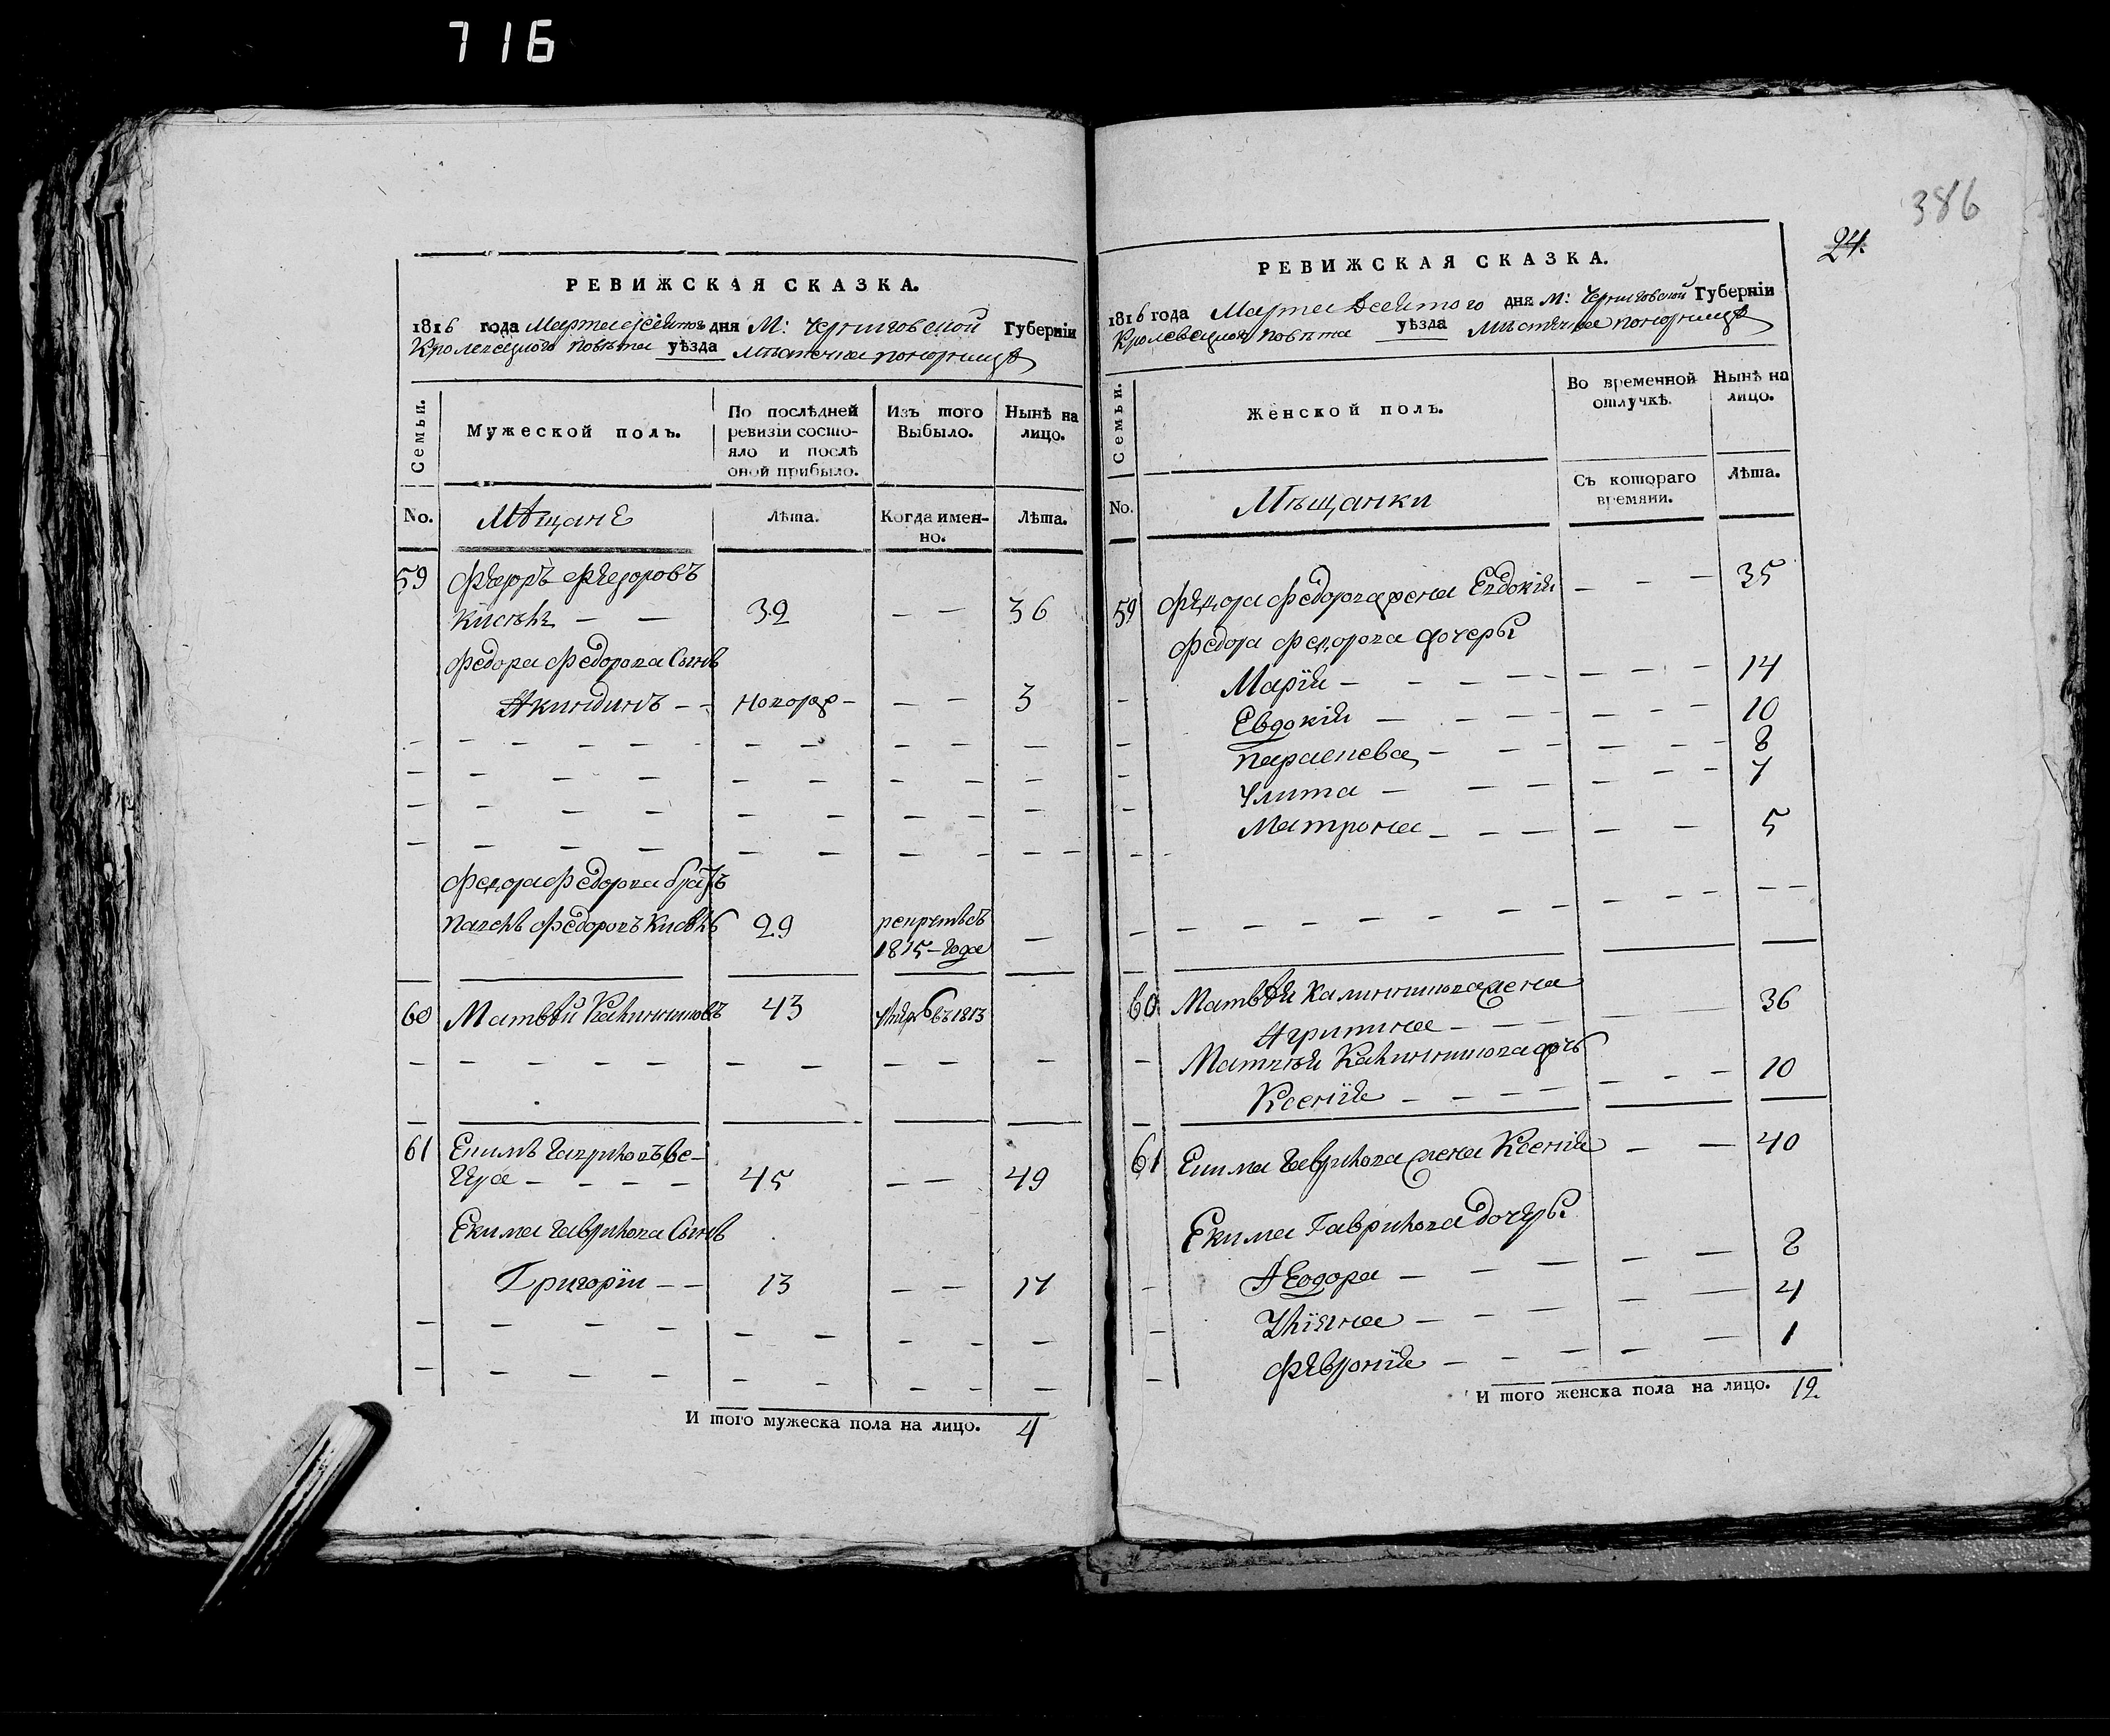 716
386
24.
РЕВИЖСКАЯ СКАЗКА.
1816 года Марта десятого дня М: Черниговской Губерніи
Кролевецкого повѣта уѣзда мѣстечка понорницѣ
Семьи.
Мужеской полъ.
По послѣдней ревизіи состояло и послѣ оной прибыло.
Изъ того Выбыло.
Нынѣ на лицо.
No. Мѣщане Лѣта. Когда именно. Лѣта.
59 Федоръ Федоровъ
32 — — 36
Федора Федорова Сынъ
Акиндинъ — — новорож — — — 3
Федора Федорова братъ
Федоровъ 29
1815 — года —
60 Матвѣй Калиниковъ 43 1813
61 Екимъ Гавриловъ Ве-
чера — — — — 45 — — 49
Екима Гаврилова Сынъ
Григорій — — 13 — — 17
И того мужеска пола на лицо. 4
РЕВИЖСКАЯ СКАЗКА.
1816 года Марта десятого дня М: Черниговской Губерніи
Кролевецкого повѣта уѣзда мѣстечка понорницѣ
Семьи.
Женской полъ.
Во временной отлучкѣ.
Нынѣ на лицо.
No. Мѣщанки Съ котораго времяни. Лѣта.
59 Федора Федорова жена Евдокія — — — 35
Федора Федорова дочеры
Марія — 14
Евдокія — 10
Параскева — 8
Улита — 7
Матрона — 5
60 Матвѣя Калиникова жена
Агрипина — 36
Матвѣя Калиникова дочь
Ксенія — 10
61 Екима Гаврилова жена Ксенія — — 40
Екима Гаврилова дочеры
Феодора — 8
Уліяна — 4
Февронія — 1
И того женска пола на лицо. 12.